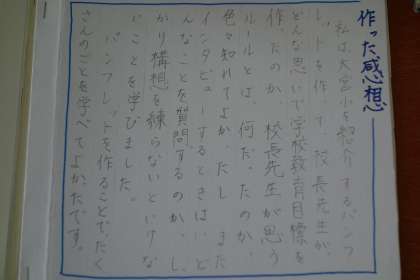 作った感想
私は大宮小を紹介するパンフ
レットを作り、校長先生が、
どんな思いで学校教育目標を
作ったのか、校長先生が思う
ルールとは、何だったのか、
色々知れてよかたし、また
インタビューするときは、ど
んなことを質問するのか、し
かり構想を練らないといけな
いことを学びました。
パンフレットを作ることで、たく
さんのことを学べてよかたです。